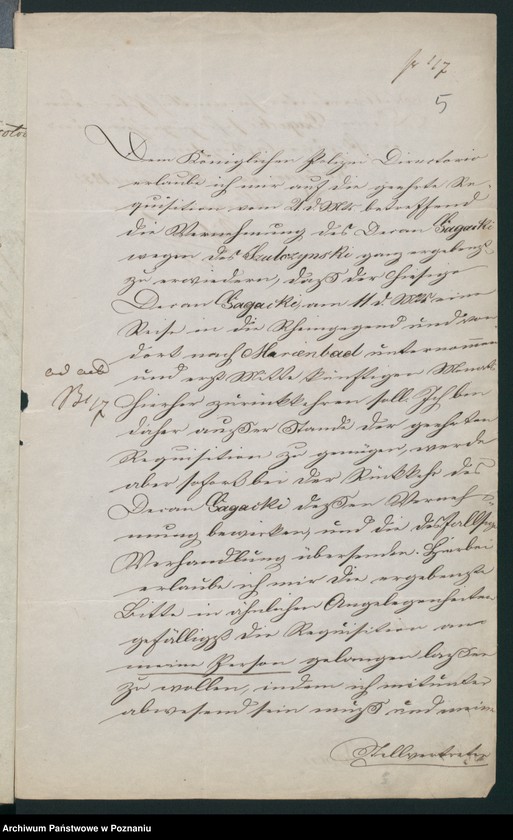 5
Dem Königlichen Polizei Directorio
erlaube ich mir auf die geehrte Re-
quisition vom 21 d. Mts. betreffend
die Vernehmung des Decan Gagacki
wegen des Szulczynski ganz ergebenst
zu erwiedern, daß der hiesige
Decan Gagacki am 11 d. Mts. eine
Reise in die Rheingegend und von
dort nach Marienbad unternommen
und erst Mitte künftigen Monats
hierher zurückkehren soll. Ich bin
daher außer Stande der geehrten
Requisition zu genügen, werde
aber sofort bei der Rückkehr des
Decan Gagacki dessen Verneh-
mung bewirken, und die desfallsige
Verhandlung übersenden. Hierbei
erlaube ich mir die ergebenste
Bitte in ähnlichen Angelegenheiten
gefälligst die Requisition an
meine Person gelangen lassen
zu wollen, indem ich mitunter
abwesend sein muß und meine
Stellvertreter
ad acta
Archiwum Państwowe w Poznaniu